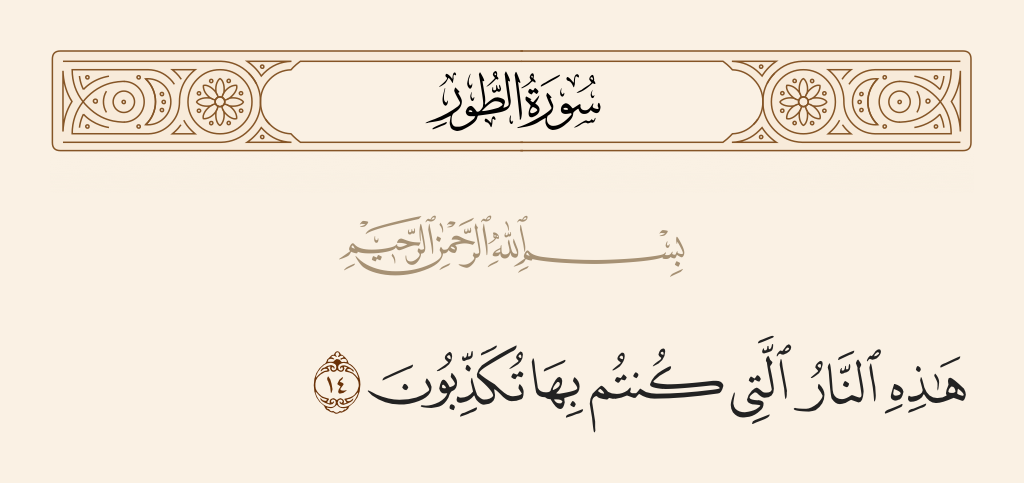 سُورَةُ الطُّورِ
بِسْمِ ٱللَّهِ ٱلرَّحْمَٰنِ ٱلرَّحِيمِ
هَـٰذِهِ ٱلنَّارُ ٱلَّتِى كُنتُم بِهَا تُكَذِّبُونَ ١٤